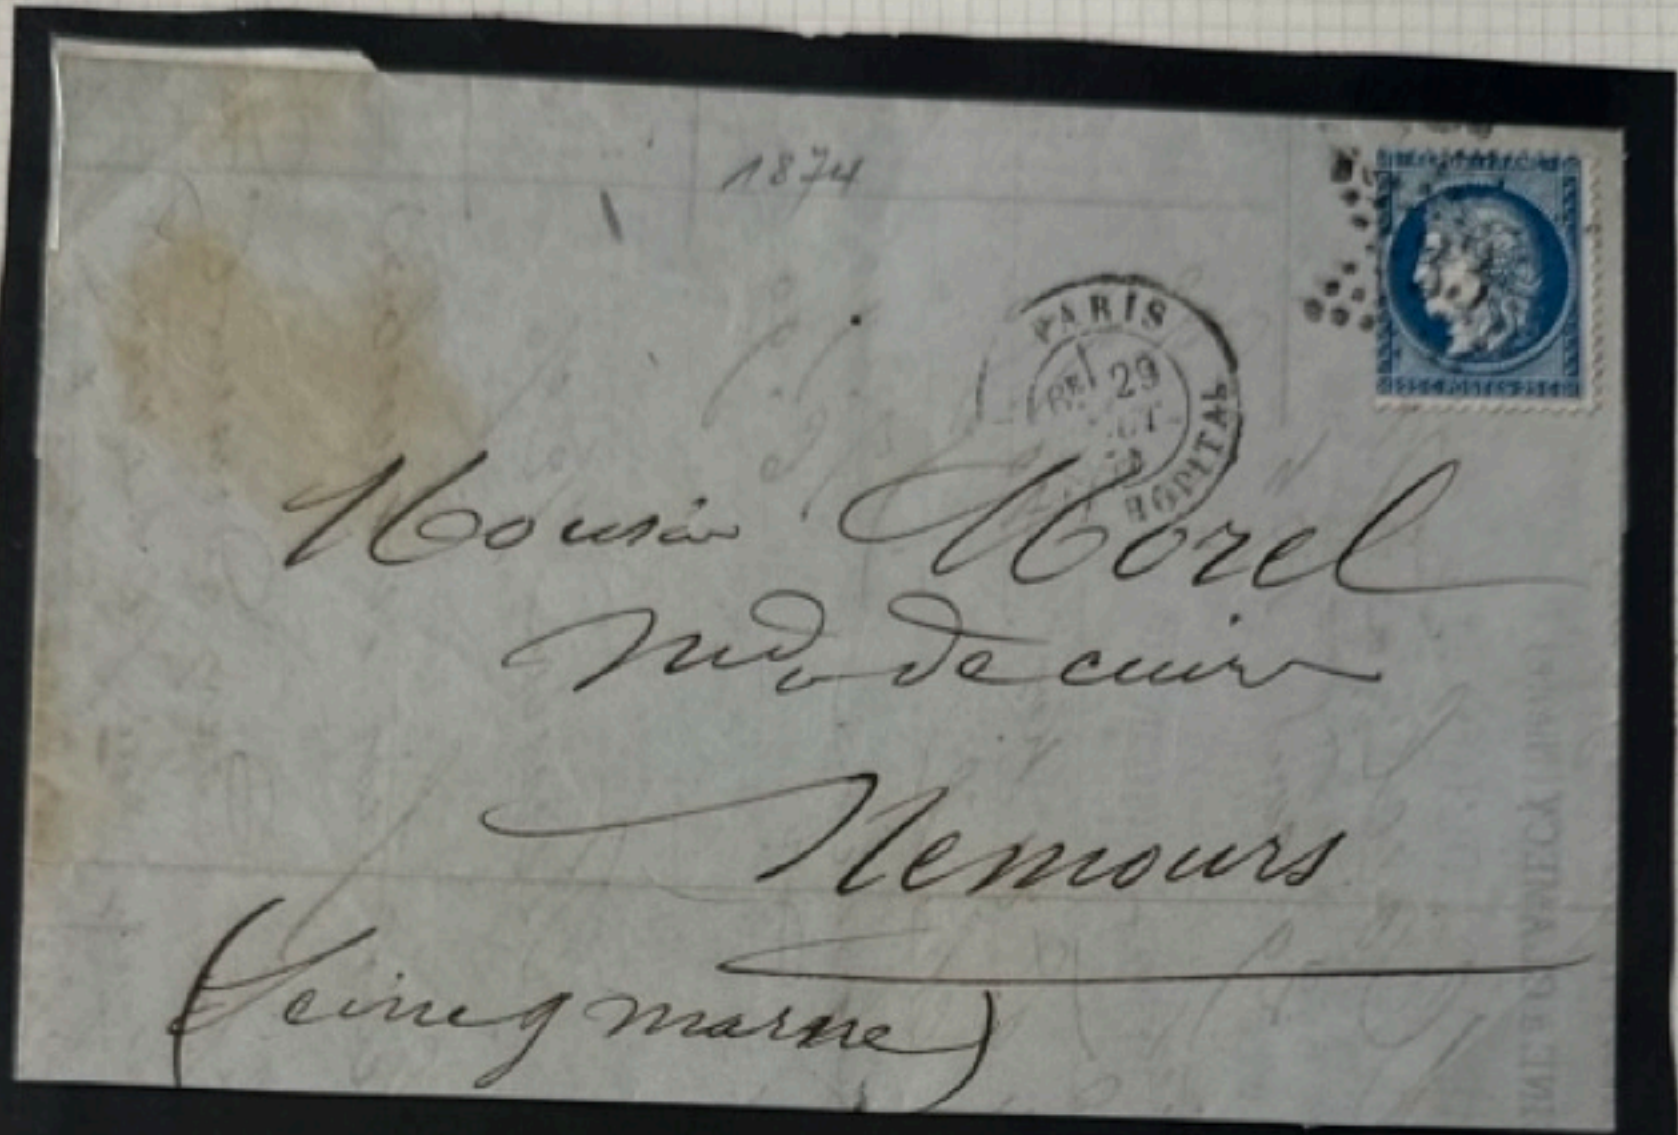 1874
PARIS
29
HOPITAL
Monsieur Morel
Md de cuirs
Nemours
(Seine & marne)